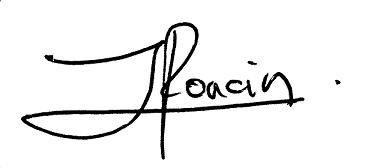 J Roncin.